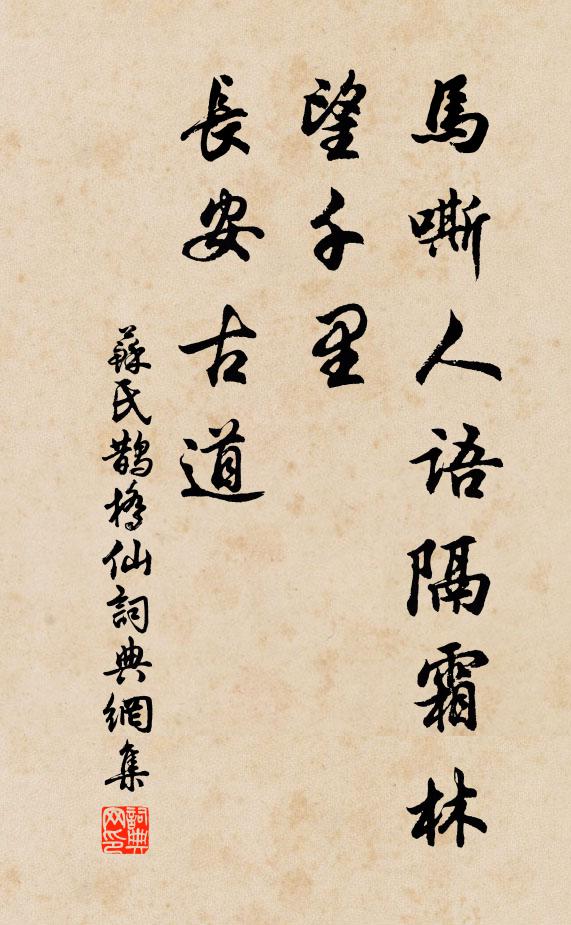 馬嘶人語隔霜林
望千里
長安古道
蘇氏鵲橋仙詞典網集
詞典
网印